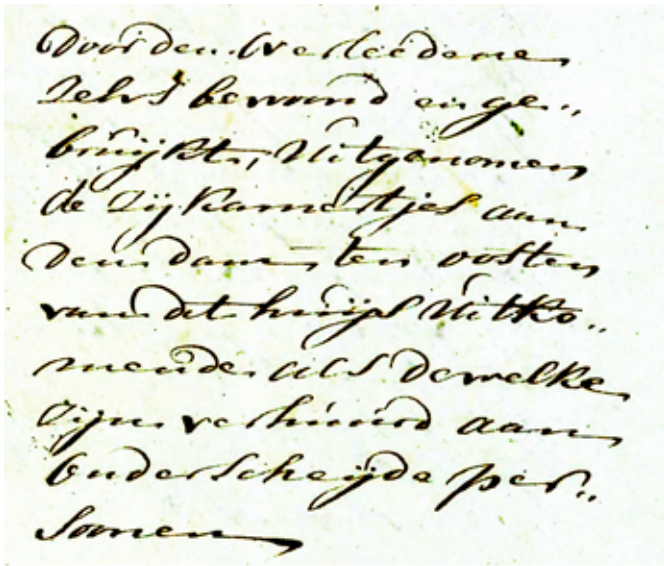 Door den Overleedene
Zelvs bewoond en ge„
bruijkt, Uitgenomen
de Zijkamertjes aan
den dam ten oosten
van dit huijs Uitko„
mende als dewelke
Zijn verhuurd aan
onderscheijde per„
sonen